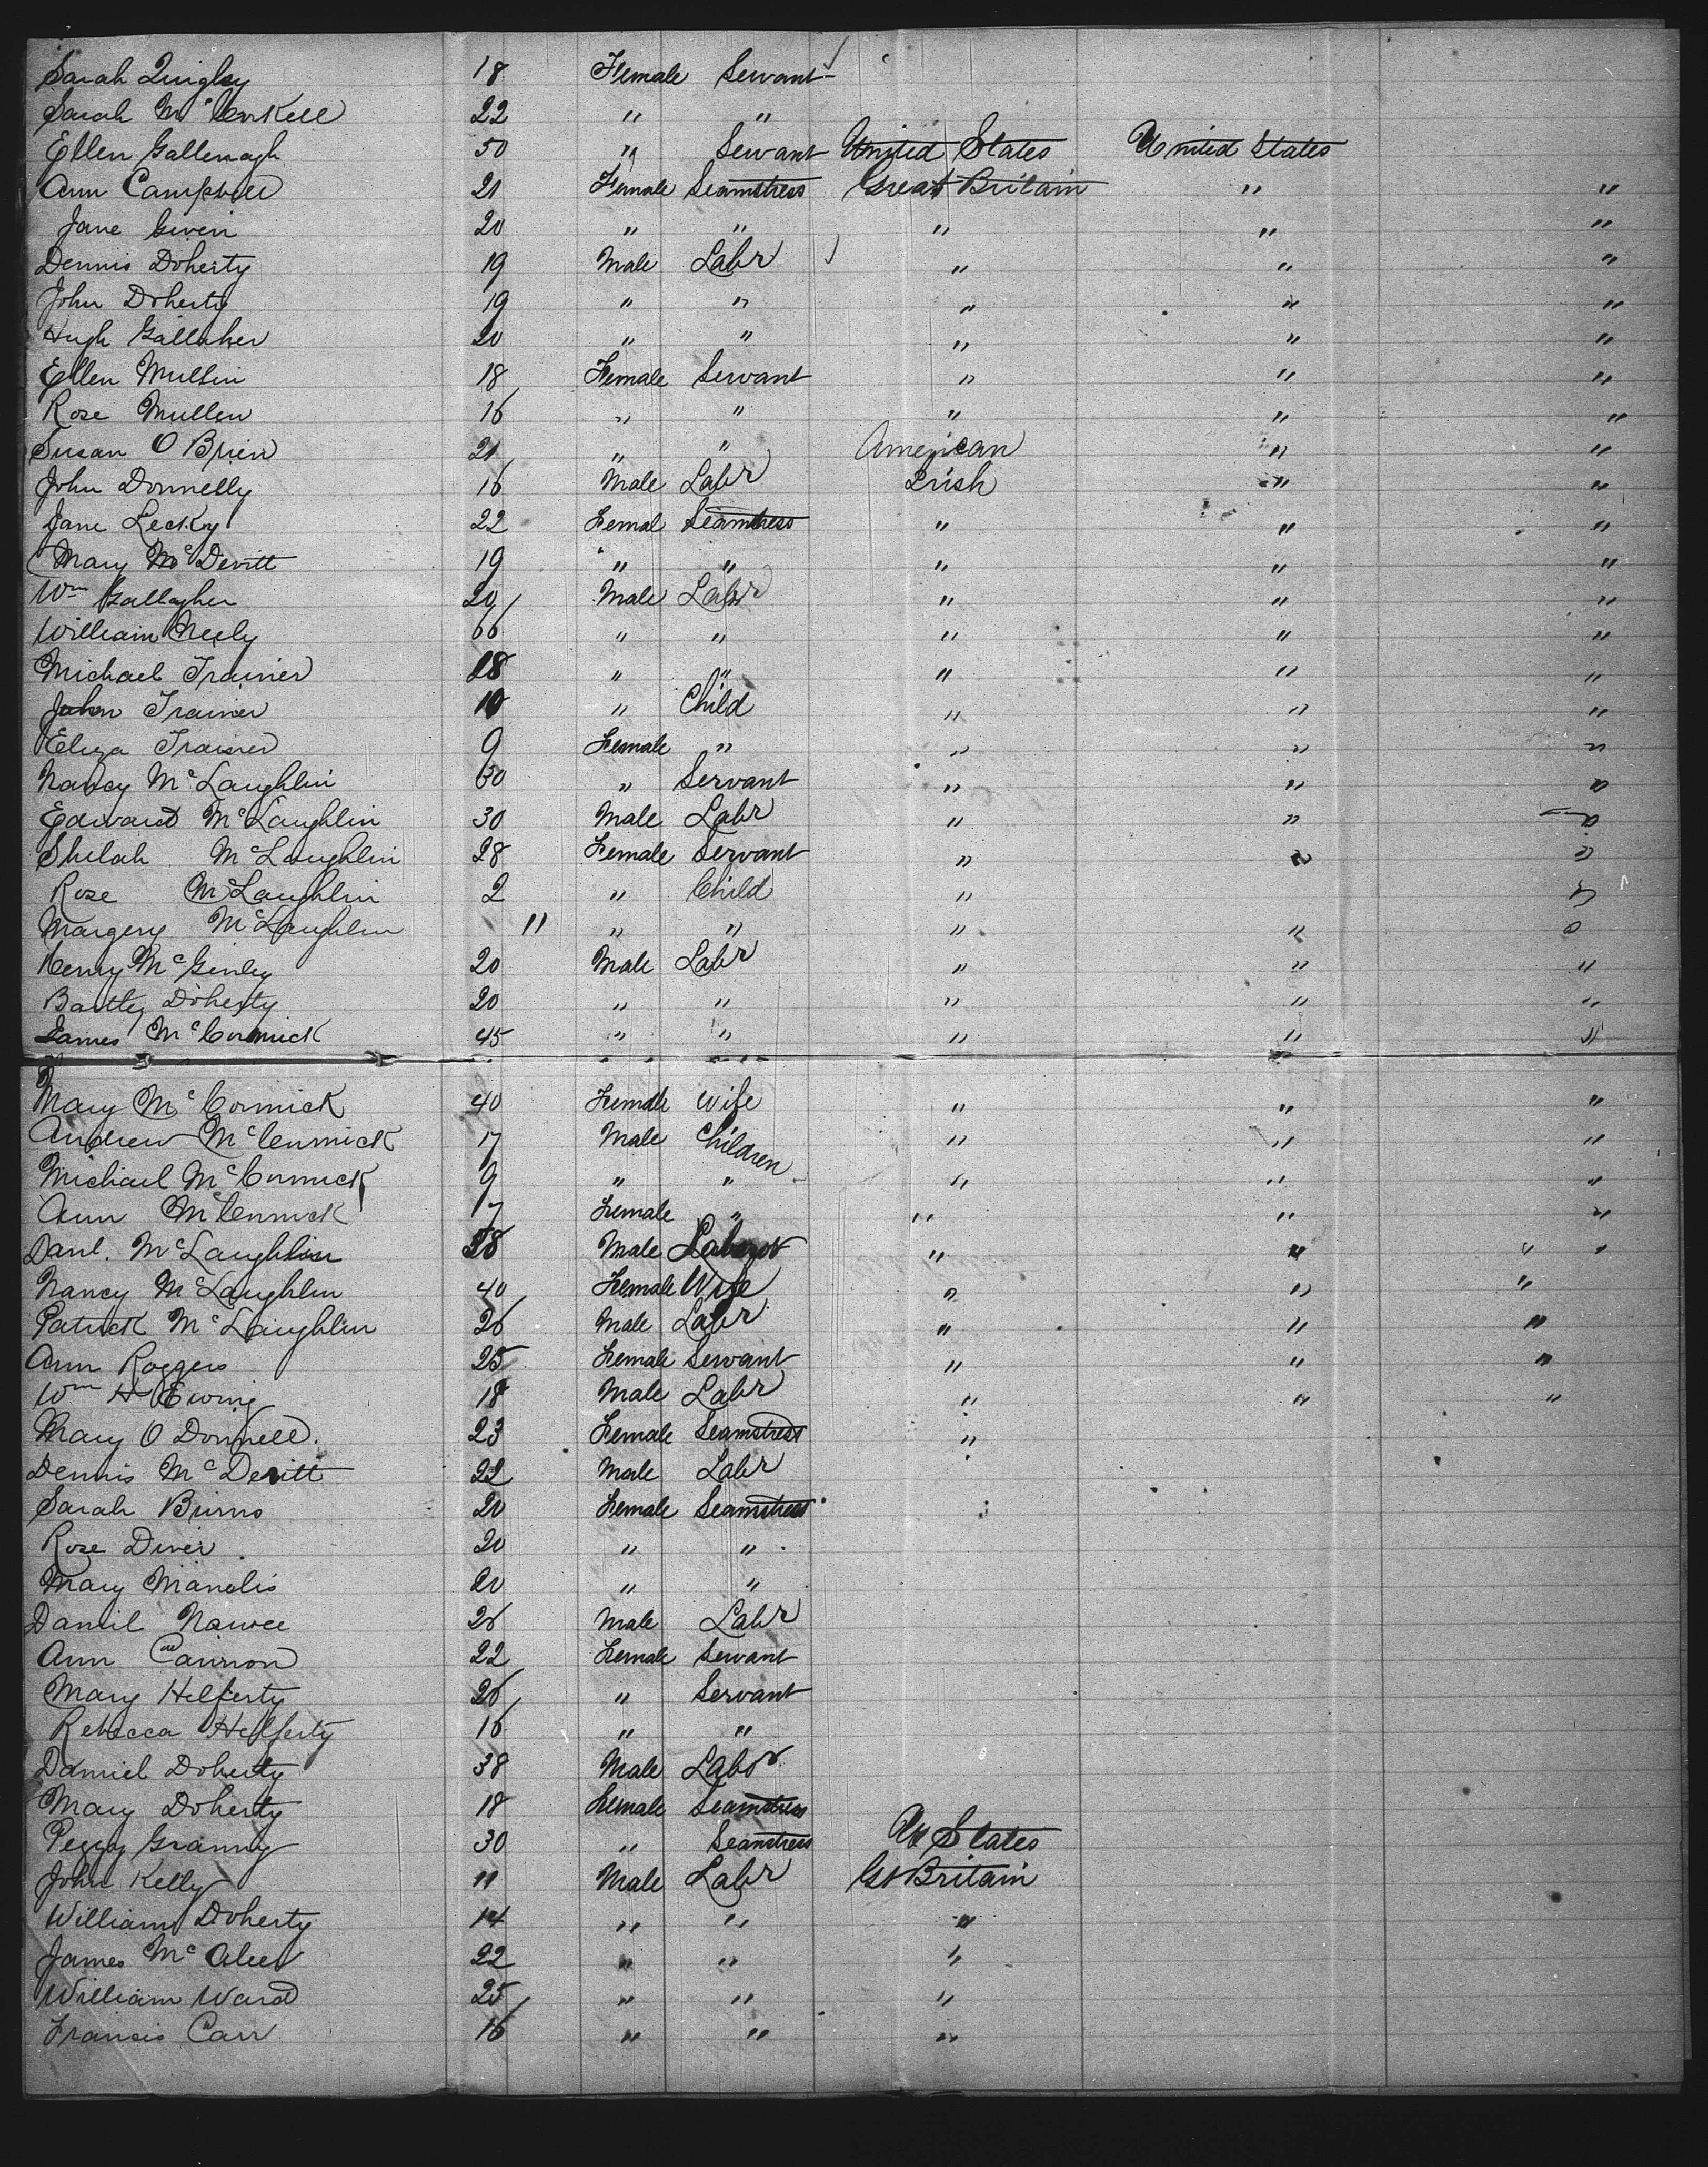 Sarah Quigley 18 Female Servant
Sarah McCorkell 22 " "
Ellen Gallenagh 50 " Servant United States United States
Ann Campbell 21 Female Seamstress Great Britain " "
Jane Given 20 " " " " "
Dennis Doherty 19 Male Labr " " "
John Doherty 19 " " " " "
Hugh Gallaher 20 " " " " "
Ellen Mullin 18 Female Servant " " "
Rose Mullen 16 " " " " "
Susan O Brien 21 " " American " "
John Donnelly 16 Male Labr Irish " "
Jane Lecky 22 Femal Seamtress " " "
Mary McDevitt 19 " " " " "
Wm Gallagher 20 Male Labr " " "
William Neely 66 " " " " "
Michael Trainer 18 " " " " "
John Trainer 10 " Child " " "
Eliza Trainer 9 Female " " " "
Nancy McLaughlin 60 " Servant " " "
Edward McLaughlin 30 Male Labr " " "
Shilah McLaughlin 28 Female Servant " " "
Rose McLaughlin 2 " Child " "
Margery McLaughlin 11 " " " " "
Henry McGinley 20 Male Labr " " "
Bartley Doherty 20 " " " " "
James McCormick 45 " " " " "
Mary McCormick 40 Female Wife " " "
Andrew McCormick 17 Male Children " " "
Michael McCormick 9 " " " " "
Ann McCormick 7 Female " " " "
Danl. McLaughlin Male Laborer " " " "
Nancy McLaughlin 40 Female Wife " " "
Patrick McLaughlin 26 Male Labr " " "
Ann Roggers 25 Female Servant " " "
Wm H Ewing 18 Male Labr " " "
Mary O Donnell. 23 Female Seamstress "
Dennis McDevitt 22 Male Labr
Sarah Burns 20 Female Seamstress
Rose Diver 20 " "
Mary Manelis 20 " "
Daniel 26 Male Labr
Ann Cannon 22 Female Servant
Mary Helferty 26 " Servant
Rebecca Helferty 16 " "
Daniel Doherty 38 Male Labor
Mary Doherty 18 Female Seamstress
Peggy Granny 30 " Seamstress U States
John Kelly 11 Male Labr Gt Britain
William Doherty 14 " " "
James McAleer 22 " " "
William Ward 25 " " "
Francis Carr 16 " " "